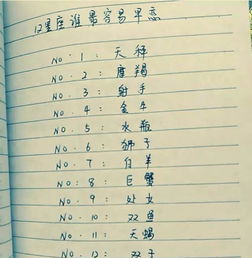 12星座谁最容易早恋
NO:1:天秤
NO.2:摩羯
NO.3:射手
NO.4:金牛
NO.5:水瓶
NO.6:狮子
NO.7:白羊
NO:8:巨蟹
NO.9:处女
NO.10:双鱼
NO.11:天蝎
NO.12:双子